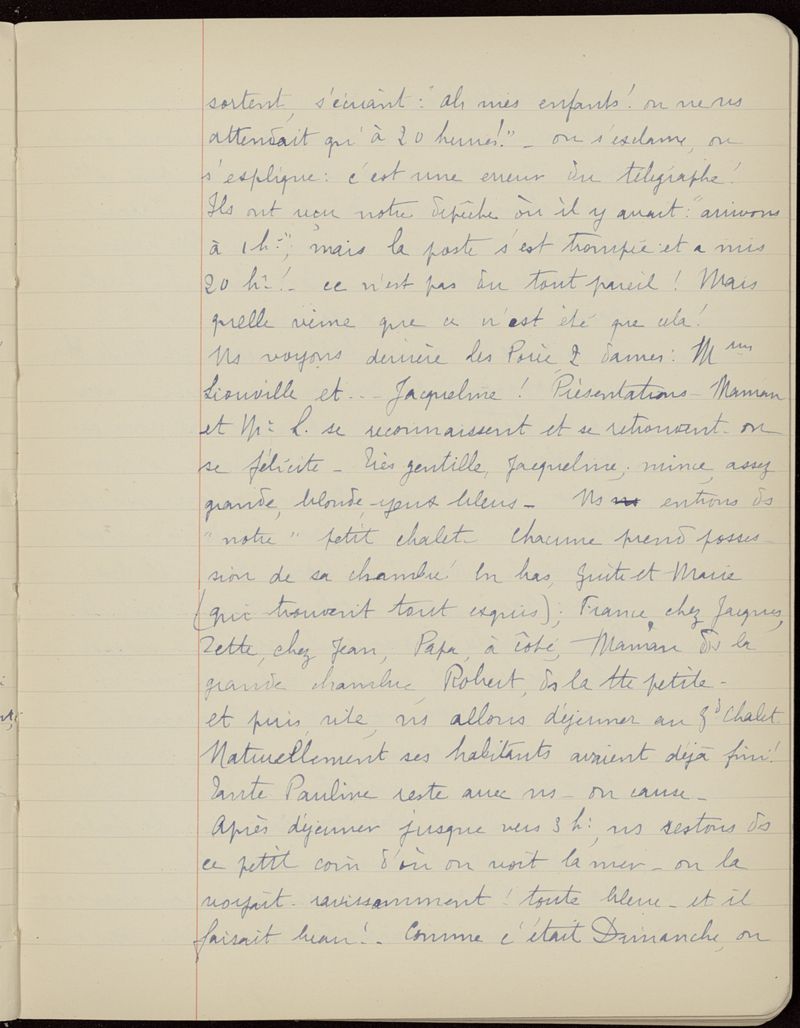 sortent, s'écriant : "Ah mes enfants ! on ne ns
attendait qu'à 20 heures !" – on s'exclame, on
s'explique : c'est une erreur du télégraphe !
Ils ont reçu notre dépêche où il y avait : "arrivons
à 1 h", mais la poste s'est trompée et a mis
20 h ! – ce n'est pas du tout pareil ! Mais
quelle veine que ce n'est été que cela !
Ns voyons derrière les 2 dames : Mmes
Liouville et... Jacqueline ! Présentations – Maman
et Me L. se reconnaissent et se retrouvent – on
se félicite – Très gentille, Jacqueline, mince, assez
grande, blonde, yeux bleus – Ns ns entrons ds
"notre" petit chalet – Chacune prend posses-
sion de sa chambre ! En bas, et Marie
(qui trouvent tout exquis) ; France, chez Jacques,
Zette, chez Jean, Papa, à côté, Maman ds la
grande chambre, Robert, ds la tte petite –
et puis, vite, ns allons déjeuner au gd chalet
Naturellement ses habitants avaient déjà fini !
Tante Pauline reste avec ns – on cause –
Après déjeuner jusque vers 3 h, ns restons ds
ce petit coin d'où on voit la mer – on la
voyait – ravissamment ! toute bleue – et il
faisait beau ! – Comme c'était Dimanche, on